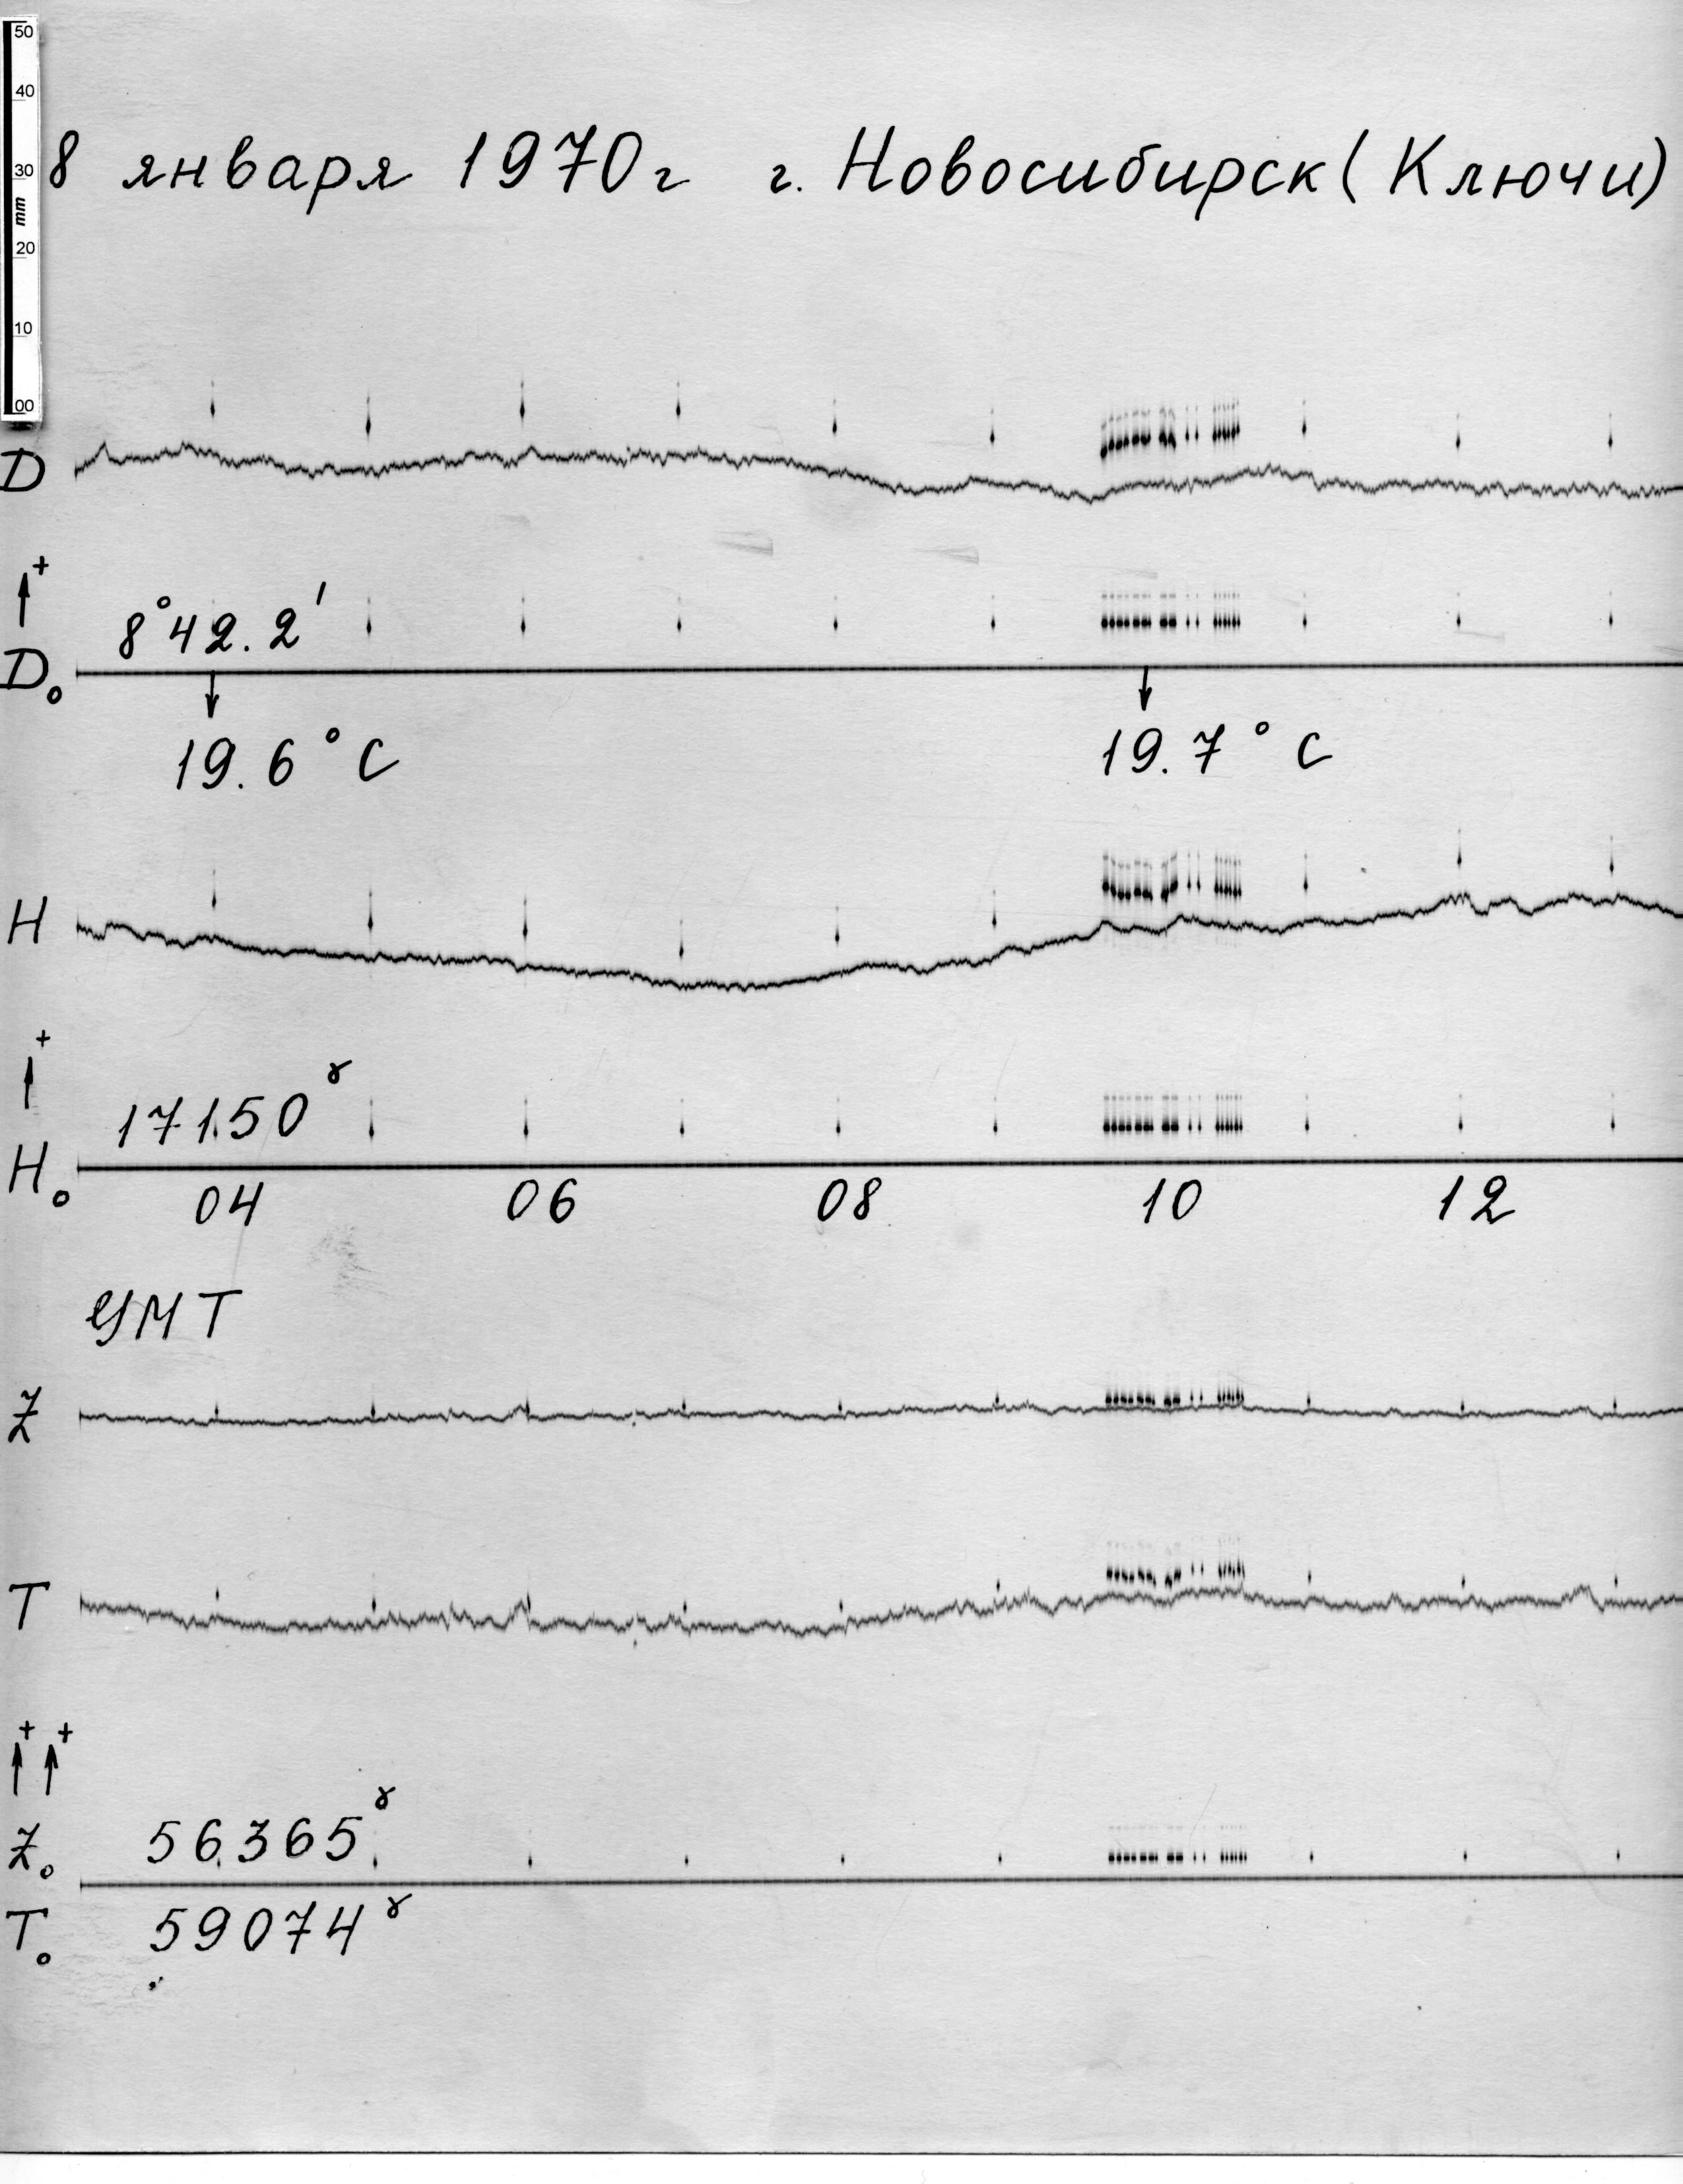 50
40
30
mm
20
10
00
8 января 1970г г. Новосибирск (Ключи)
D
+
8°42.2'
D₀
19.6°C 19.7°C
H
+
17150γ
H₀
04 06 08 10 12
УМТ
Z
T
+ +
56365γ
Z₀
T₀ 59074γ